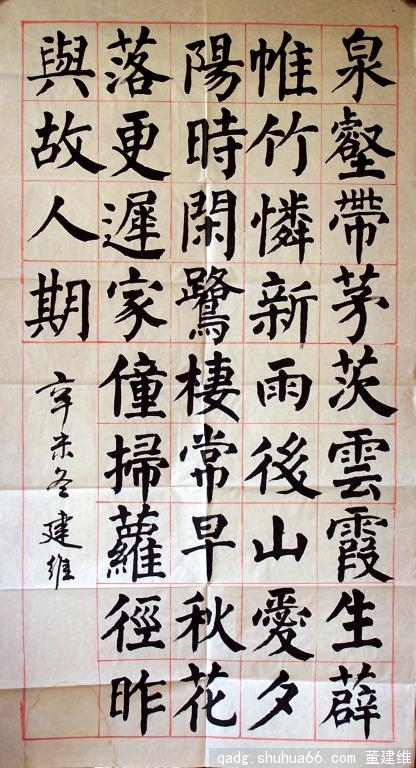 泉壑帶茅茨雲霞生薜
帷竹憐新雨後山愛夕
陽時閑鷺棲常早秋花
落更遲家僮掃蘿徑昨
與故人期
辛未冬建維
qadg.shuhua66.com 董建维